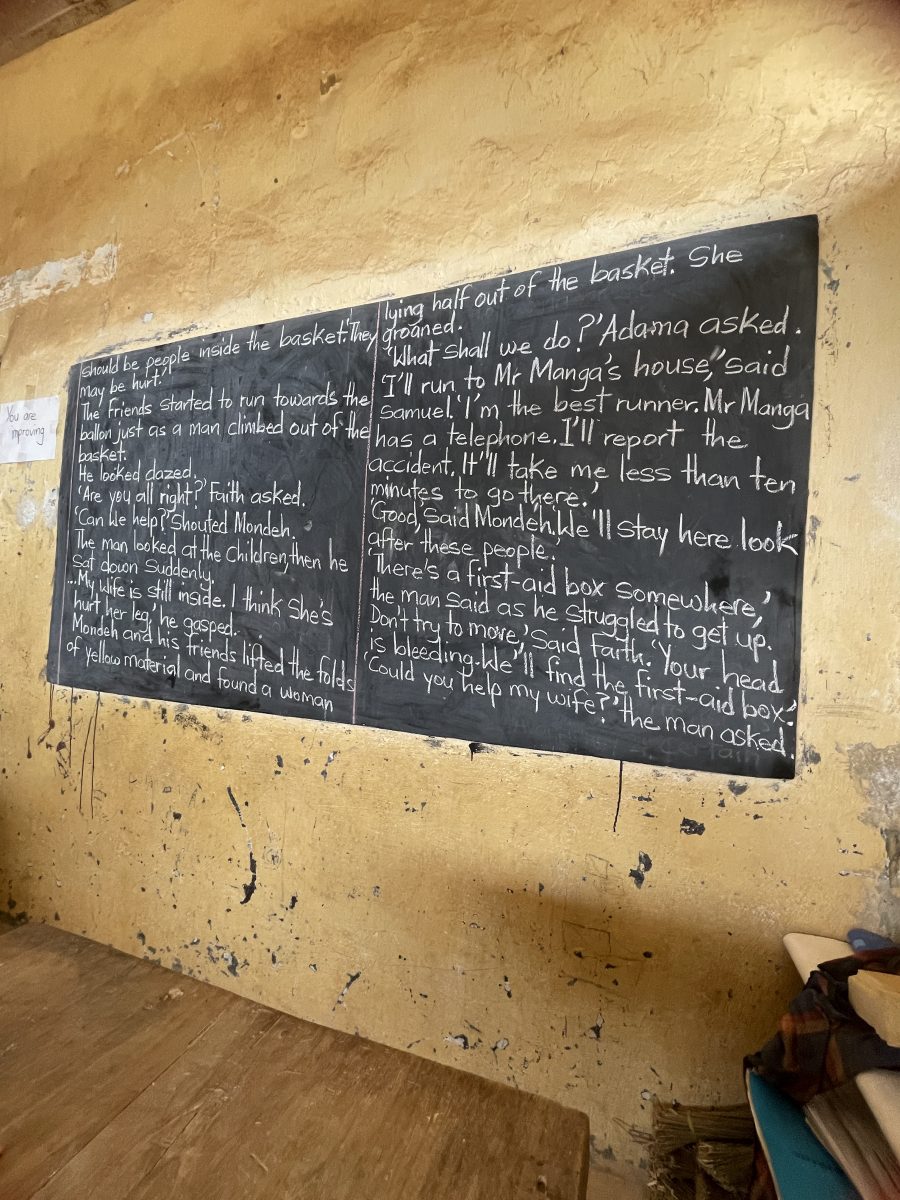 You are
mproving
should be people inside the basket.'They
may be hurt.'
The friends started to run towards the
ballon just as a man climbed out of the
basket.
He looked dazed.
'Are you all right?' Faith asked.
'Can We help?' Shouted Mondeh.
The man looked at the Children, then he
Sat down Suddenly.
...My wife is still inside. I think She's
hurt her leg,' he gasped.
Mondeh and his friends lifted the folds
of yellow material and found a woman
lying half out of the basket. She
groaned.
'What shall we do?' Adama asked.
'I'll run to Mr Manga's house,'' said
Samuel. 'I'm the best runner. Mr Manga
has a telephone. I'll report the
accident. It'll take me less than ten
minutes to go there.'
'Good, Said Mondeh. We'll stay here look
after these people.
'There's a first-aid box somewhere,'
the man Said as he struggled to get up.
Don't try to move,' Said Faith. 'Your head
is bleeding. We''ll find the first-aid box.'
'Could you help my wife?' the man asked.